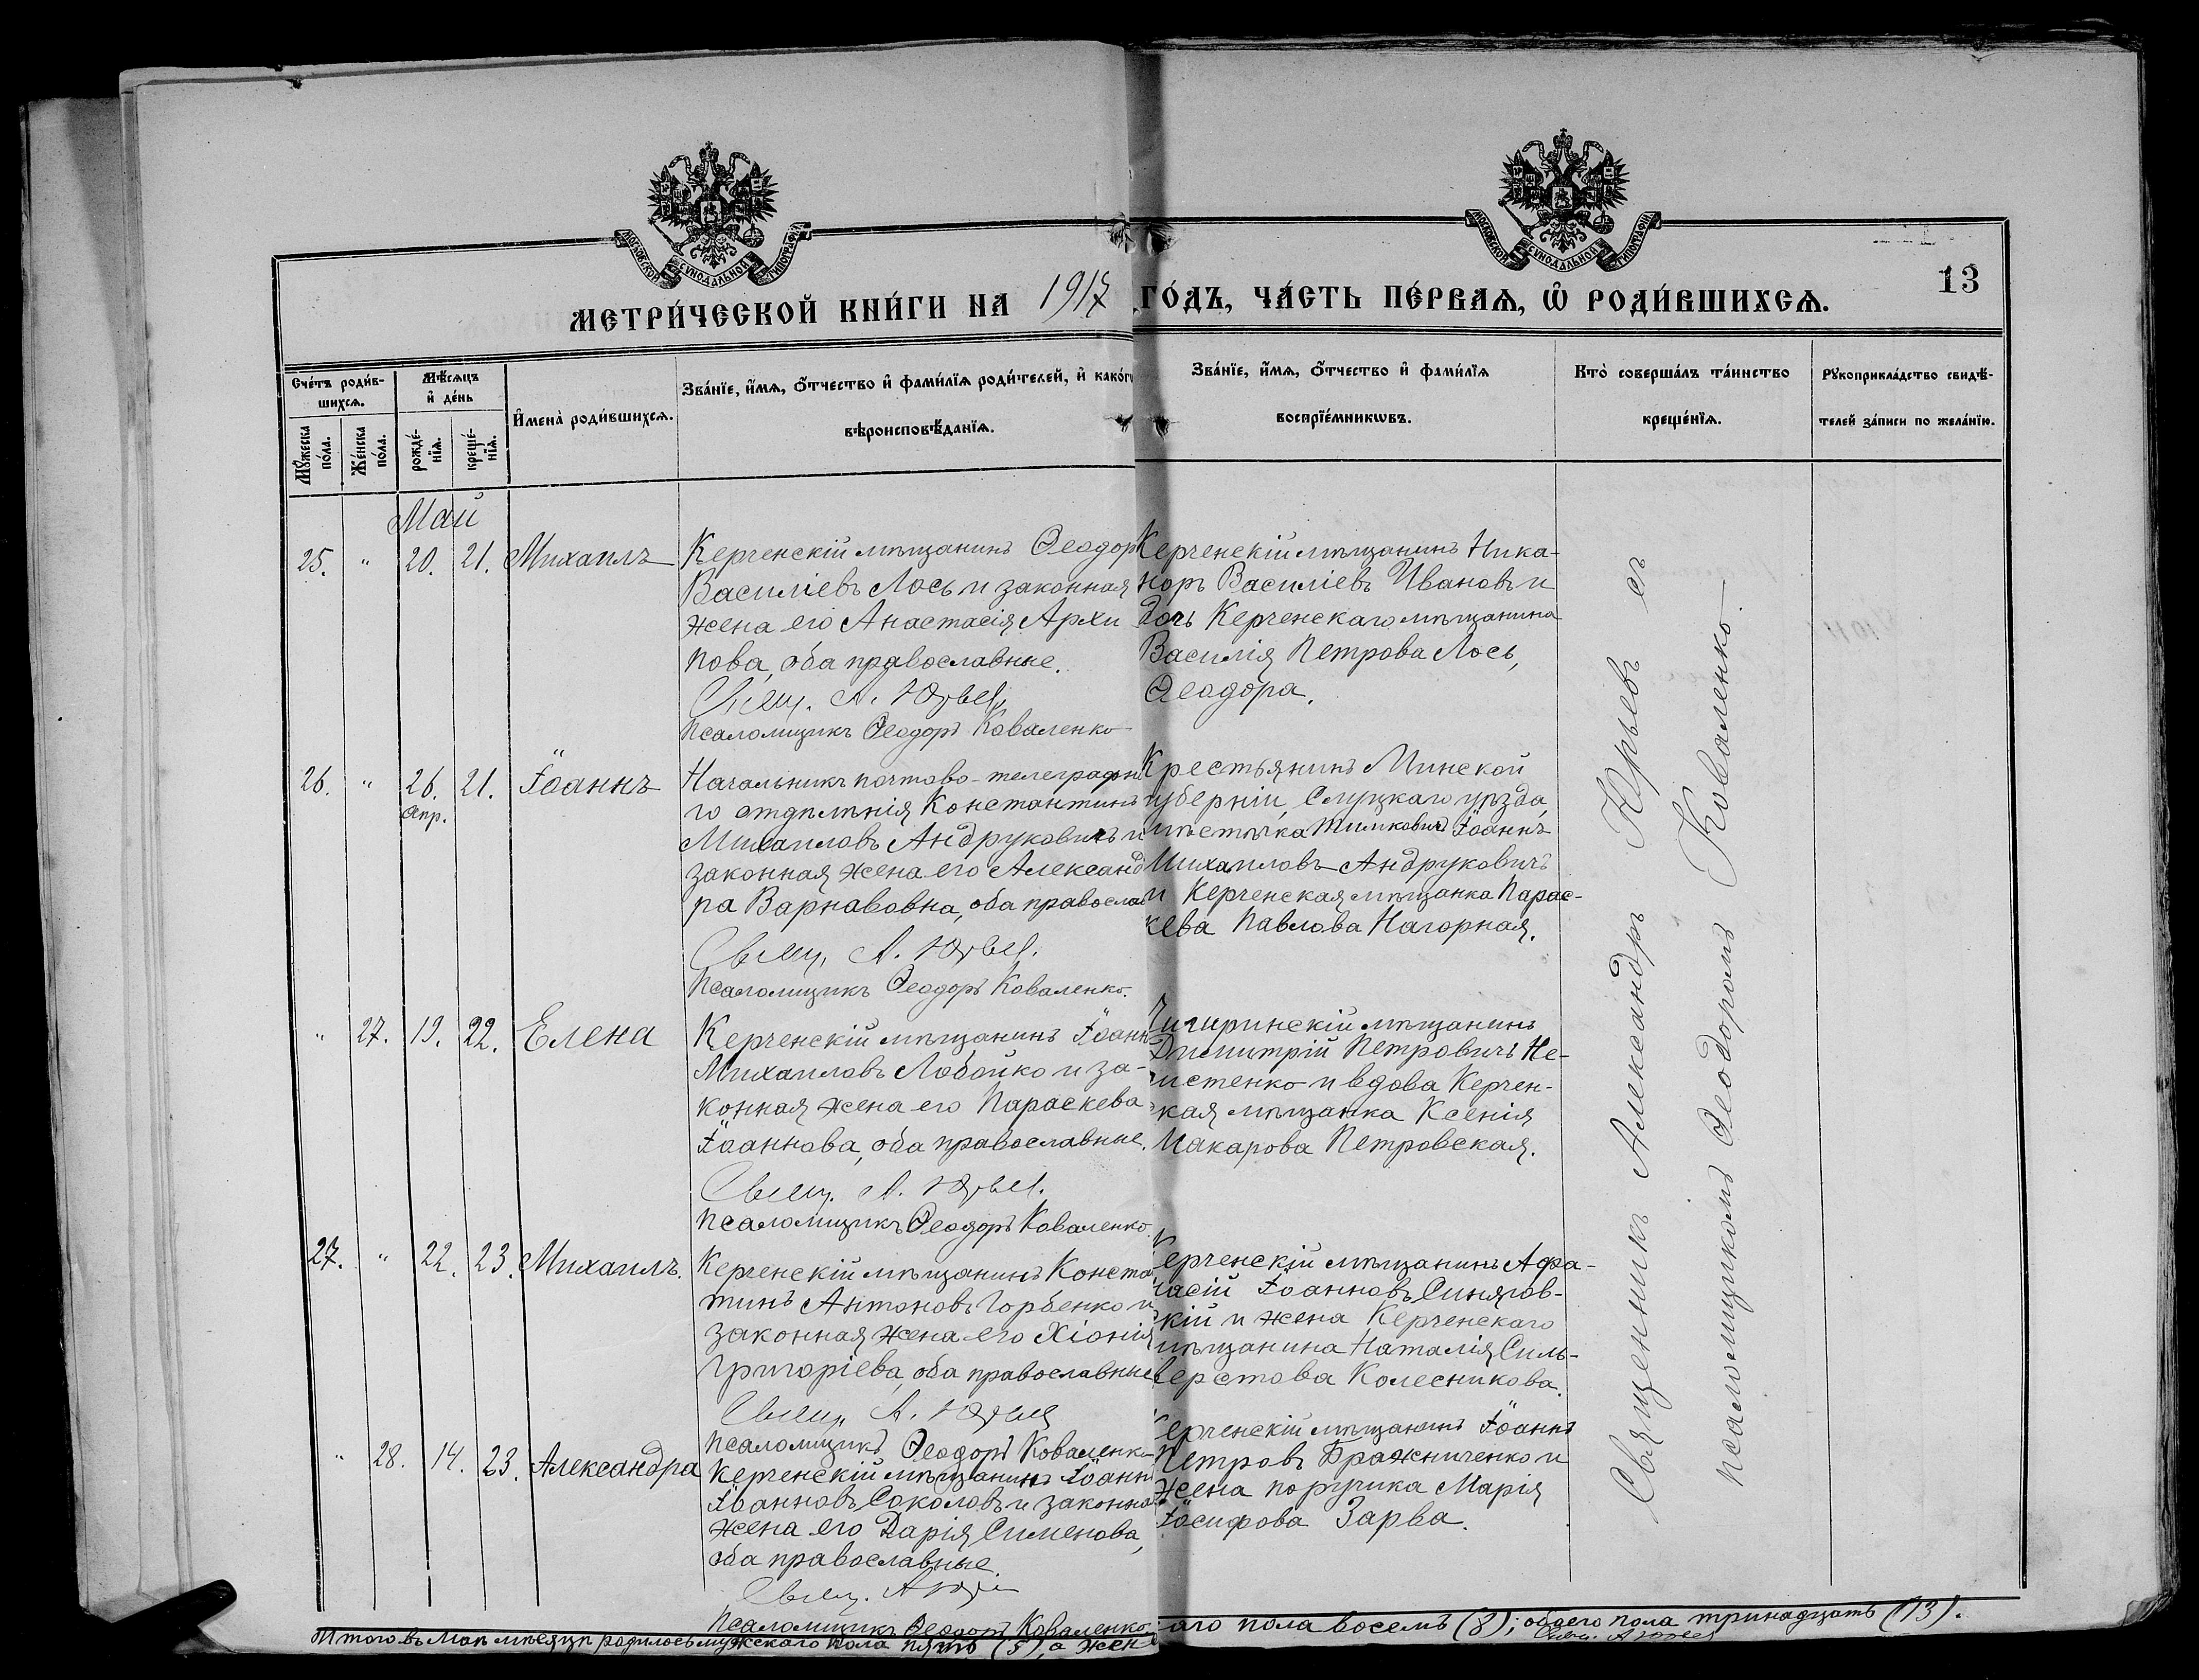 МОСКОВСКОЙ СѴНОДАЛЬНОЙ ТИПОГРАФІИ
МОСКОВСКОЙ СѴНОДАЛЬНОЙ ТИПОГРАФІИ
МЕТРИ́ЧЕСКОЙ КНИ́ГИ НА 1917 ГО́ДЪ, ЧА́СТЬ ПЕ́РВАѦ, Ѿ РОДИ́ВШИХСѦ.
13
Сче́тъ роди́в-
шихсѧ.
Мꙋ́жеска
по́ла.
Же́нска
по́ла.
Мѣ́сѧцъ
и҆ де́нь
рожде́-
нїѧ.
креще́-
нїѧ.
И҆мена̀ роди́вшихсѧ.
Зва́нїе, и҆́мѧ, ѻ҆́тчество и҆ фами́лїѧ роди́телей, и҆ како́гѡ
вѣроисповѣ́данїѧ.
Зва́нїе, и҆́мѧ, ѻ҆́тчество и҆ фами́лїѧ
воспрїе́мникѡвъ.
Кто̀ соверша́лъ та́инство
креще́нїѧ.
Рꙋкоприкла́дство свидѣ́-
телей за́писи по жела́нїю.
Май
25. " 20. 21. Михаилъ
Керченскій мѣщанинъ Ѳеодоръ
Василіевъ Лось и законная
жена его Анастасія Архи
пова, оба православные.
Свящ. А. Юрьев
Псаломщикъ Ѳеодоръ Коваленко
Керченскій мѣщанинъ Ника-
норъ Василіевъ Ивановъ и
дочь Керченскаго мѣщанина
Василія Петрова Лось,
Ѳеодора.
26. " 26. 21. Іоаннъ
апр.
Начальникъ почтово-телеграфна
го отдѣленія Константинъ
Михаиловъ Андруковичъ и
законная жена его Александ
ра Варнавовна, оба православ
Свящ. А. Юрьев.
Псаломщикъ Ѳеодоръ Коваленко.
Крестьянинъ Минской
губерніи, Слуцкаго уѣзда,
мѣстечка Тимковичъ Іоаннъ
Михаиловъ Андруковичъ
и Керченская мѣщанка Парас-
кева Павлова Нагорная.
" 27. 19. 22. Елена
Керченскій мѣщанинъ Іоаннъ
Михаиловъ Лобойко и за-
конная жена его Параскева
Іоаннова, оба православные.
Свящ. А. Юрьев.
Псаломщикъ Ѳеодоръ Коваленко
Чигиринскій мѣщанинъ
Димитрій Петровичъ Не-
истенко и вдова Керчен-
ская мѣщанка Ксенія
Макарова Петровская.
27. " 22. 23. Михаилъ.
Керченскій мѣщанинъ Конста
тинъ Антоновъ Горбенко и
законная жена его Хіонія
Григоріева, оба православные
Свящ. А. Юрьев
Псаломщикъ Ѳеодоръ Коваленко
Керченскій мѣщанинъ Афа-
насій Іоанновъ Синягов-
скій и жена Керченскаго
мѣщанина Наталія Силь-
верстова Колесникова.
" 28. 14. 23. Александра
Керченскій мѣщанинъ Іоаннъ
Іоанновъ Соколовъ и законная
жена его Дарія Сименова,
оба православные.
Свящ. А Юрьев
Псаломщикъ Ѳеодоръ Коваленко
Керченскій мѣщанинъ Іоаннъ
Петровъ Бражниченко и
жена поручика Марія
Іосифова Зарва.
Священникъ Александръ Юрьевъ съ
псаломщикомъ Ѳеодоромъ Коваленко.
Итого въ Маѣ мѣсяцѣ родилось мужскаго пола пять (5), а жен
скаго пола восемь (8); обоего пола тринадцать (13).
Свящ. А Юрьев